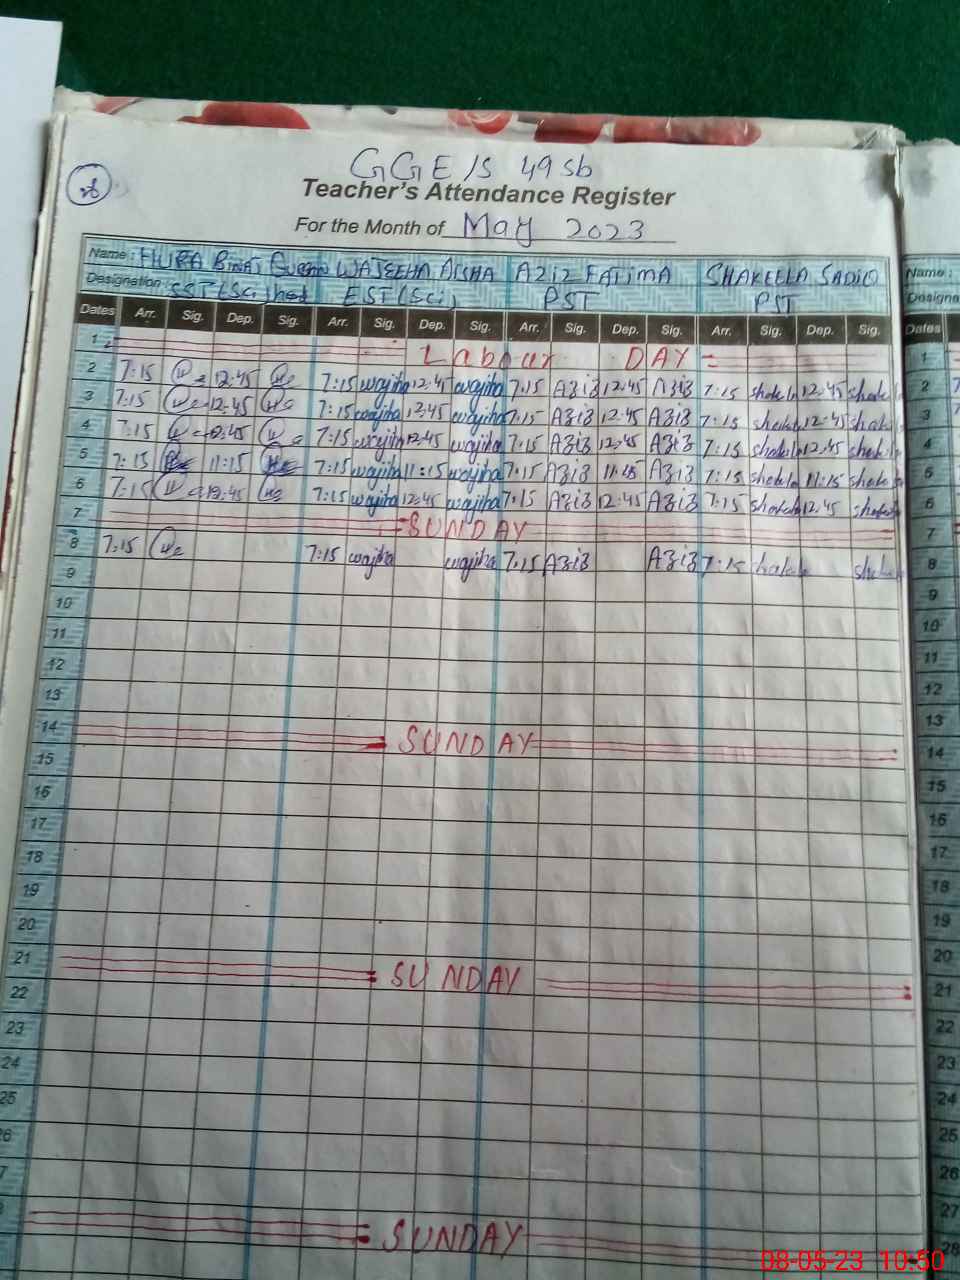 GGE/S 49sb
Teacher's Attendance Register
For the Month of May 2023
Name : HURA BINAT WAJEEHA AISHA AZIZ FATIMA SHAKEELA SADIQ Name :
Designation : SST(Sc) hed EST(Sci) PST PST Designa
Dates Arr. Sig. Dep. Sig. Arr. Sig. Dep. Sig. Arr. Sig. Dep. Sig. Arr. Sig. Dep. Sig. Dates
1 Labour DAY 1
2 7:15 12:45 7:15 wajiha 12:45 wajiha 7:15 Aziz 12:45 Aziz 7:15 shakela 12:45 shake 2
3 7:15 12:45 7:15 wajiha 12:45 wajiha 7:15 Aziz 12:45 Aziz 7:15 shakela 12:45 shake 3
4 7:15 12:45 7:15 wajiha 12:45 wajiha 7:15 Aziz 12:45 Aziz 7:15 shakela 12:45 shake 4
5 7:15 11:15 7:15 wajiha 11:15 wajiha 7:15 Aziz 11:15 Aziz 7:15 shakela 11:15 shake 5
6 7:15 12:45 7:15 wajiha 12:45 wajiha 7:15 Aziz 12:45 Aziz 7:15 shakela 12:45 shake 6
7 SUNDAY 7
8 7:15 7:15 wajiha wajiha 7:15 Aziz Aziz 7:15 shakela shake 8
9 9
10 10
11 11
12 12
13 13
14 SUNDAY 14
15 15
16 16
17 17
18 18
19 19
20 20
21 SUNDAY 21
22 22
23 23
24 24
25 25
26 26
7 27
SUNDAY 28
08-05-23 10:50